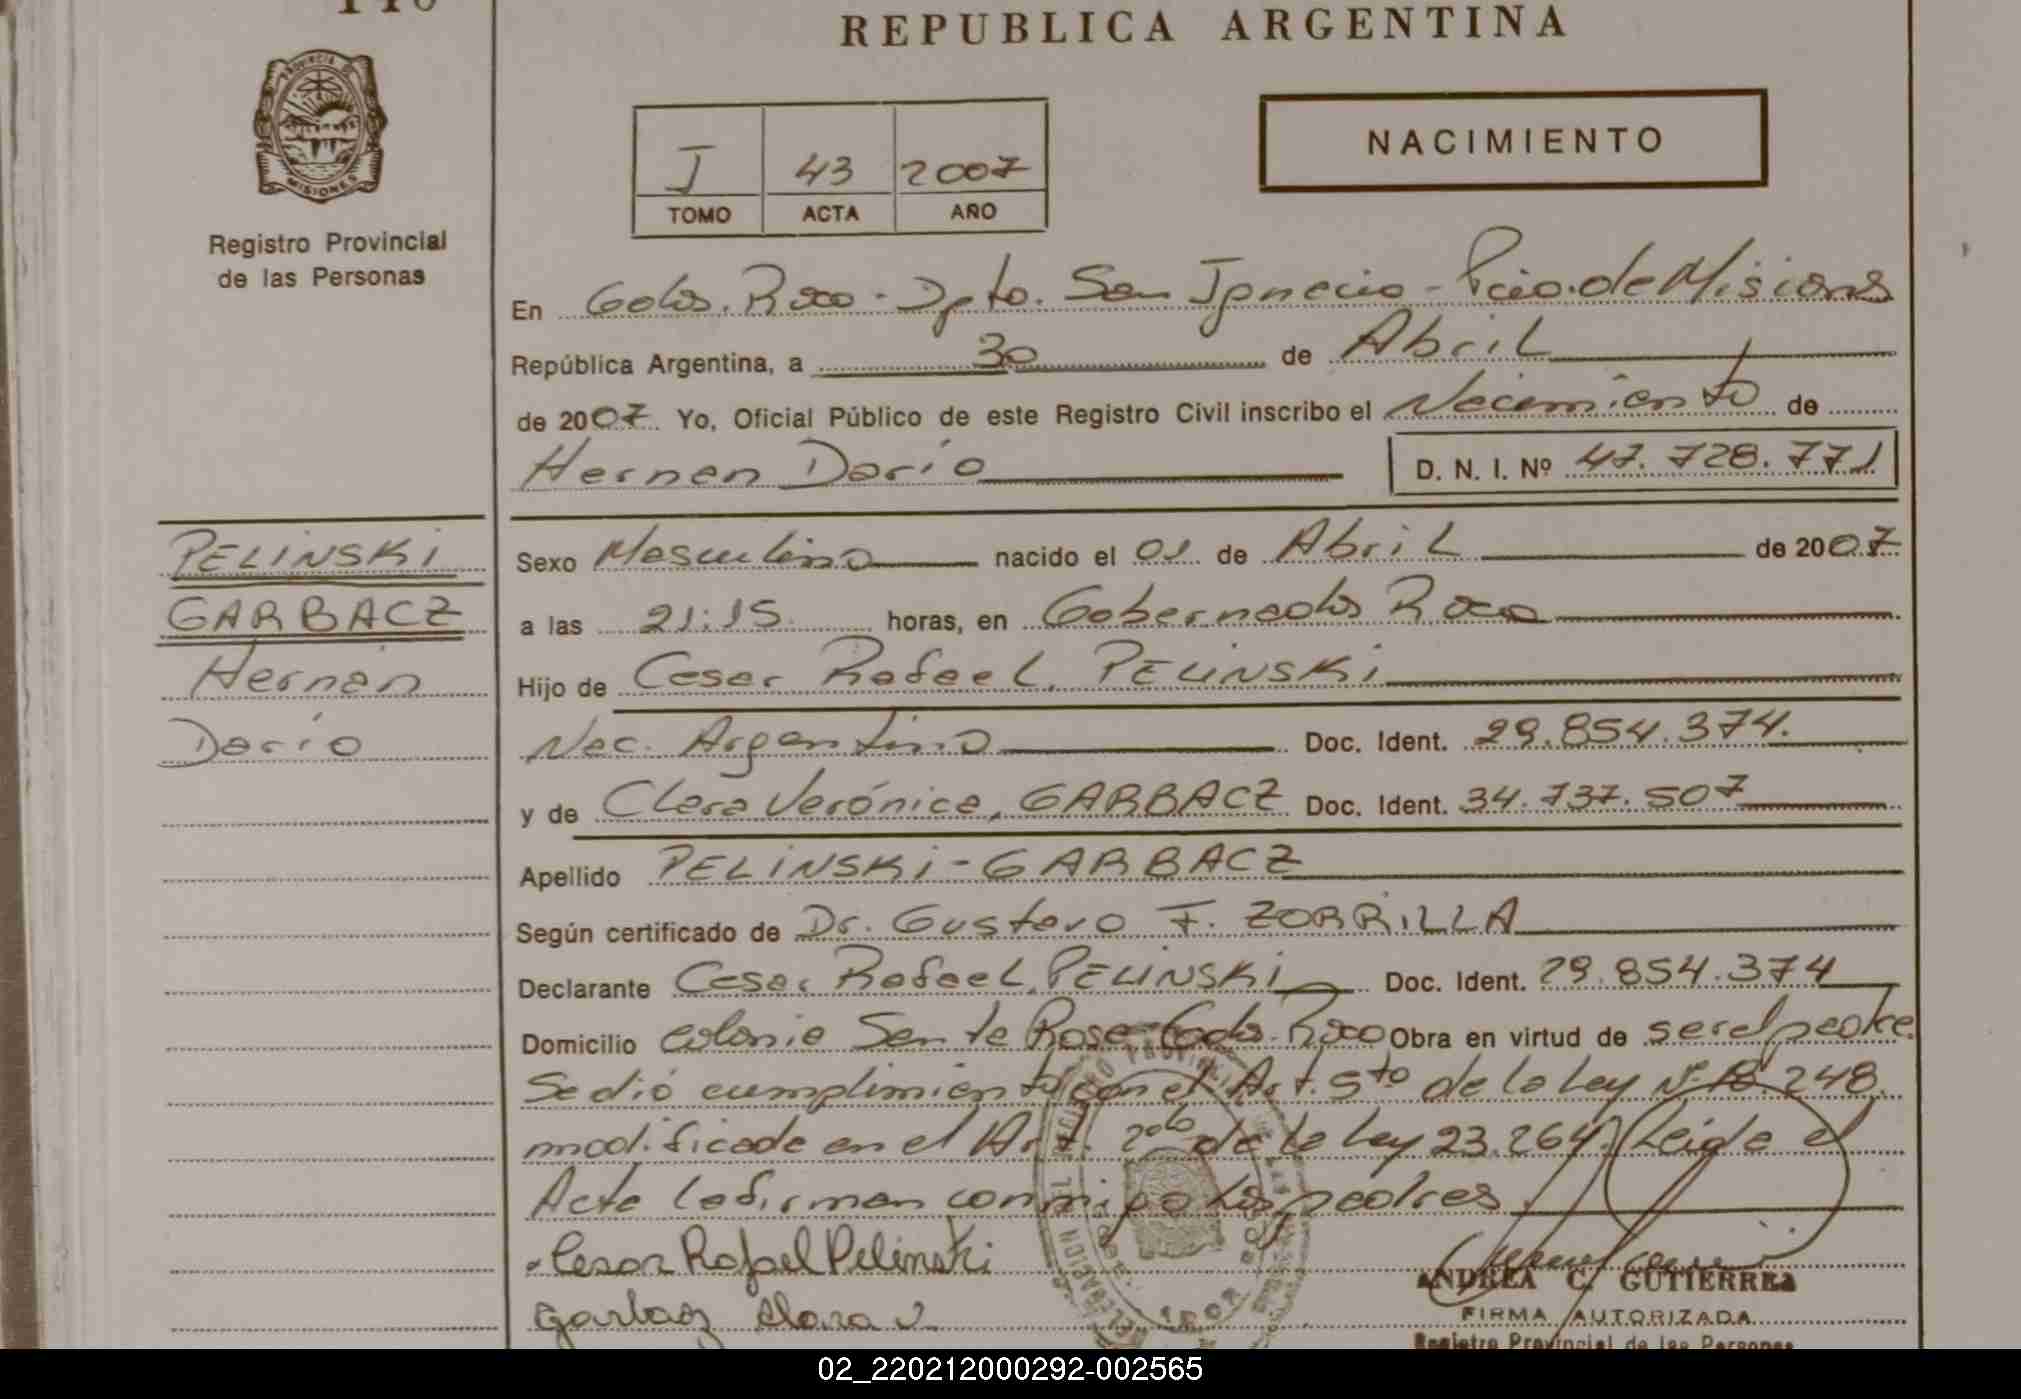 REPUBLICA ARGENTINA
PROVINCIA DE
MISIONES
Registro Provincial
de las Personas
J 43 2007
TOMO ACTA AÑO
NACIMIENTO
En Gobdor. Roca - Dpto. San Ignacio - Pcia. de Misiones
República Argentina, a 30 de Abril
de 2007 Yo, Oficial Público de este Registro Civil inscribo el Nacimiento de
Hernan Darío D. N. I. Nº 47.728.771
PELINSKI
GARBACZ
Hernán
Darío
Sexo Masculino nacido el 01 de Abril de 2007
a las 21:15 horas, en Gobernador Roca
Hijo de Cesar Rafael, PELINSKI
Nac. Argentino Doc. Ident. 29.854.374.
y de Clara Verónica, GARBACZ Doc. Ident. 34.737.507
Apellido PELINSKI - GARBACZ
Según certificado de Dr. Gustavo F. ZORRILLA
Declarante Cesar Rafael, PELINSKI Doc. Ident. 29.854.374
Domicilio colonia Santa Rosa - Gobdor. Roca Obra en virtud de ser el padre.
Se dió cumplimiento con el Art. 5to de la Ley Nº 18.248.
modificada en el Art. 2do de la Ley 23.264. Leida el
Acta la firman conmigo los padres
Cesar Rafael Pelinski
Garbacz Clara V.
ANDREA C. GUTIERREZ
FIRMA AUTORIZADA
Registro Provincial de las Personas
02_220212000292-002565